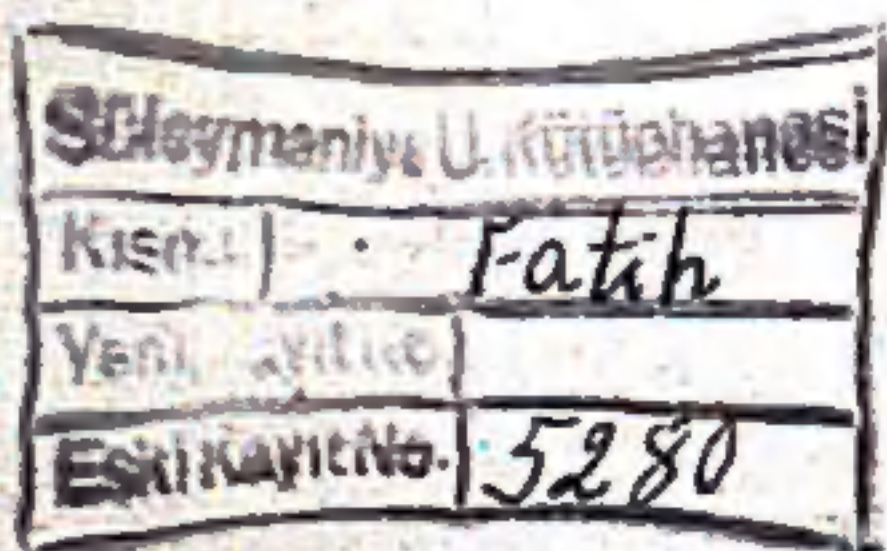 Süleymaniye U. Kütüphanesi
Kısmı Fatih
Yeni Kayıt No
Eski Kayıt No. 5280